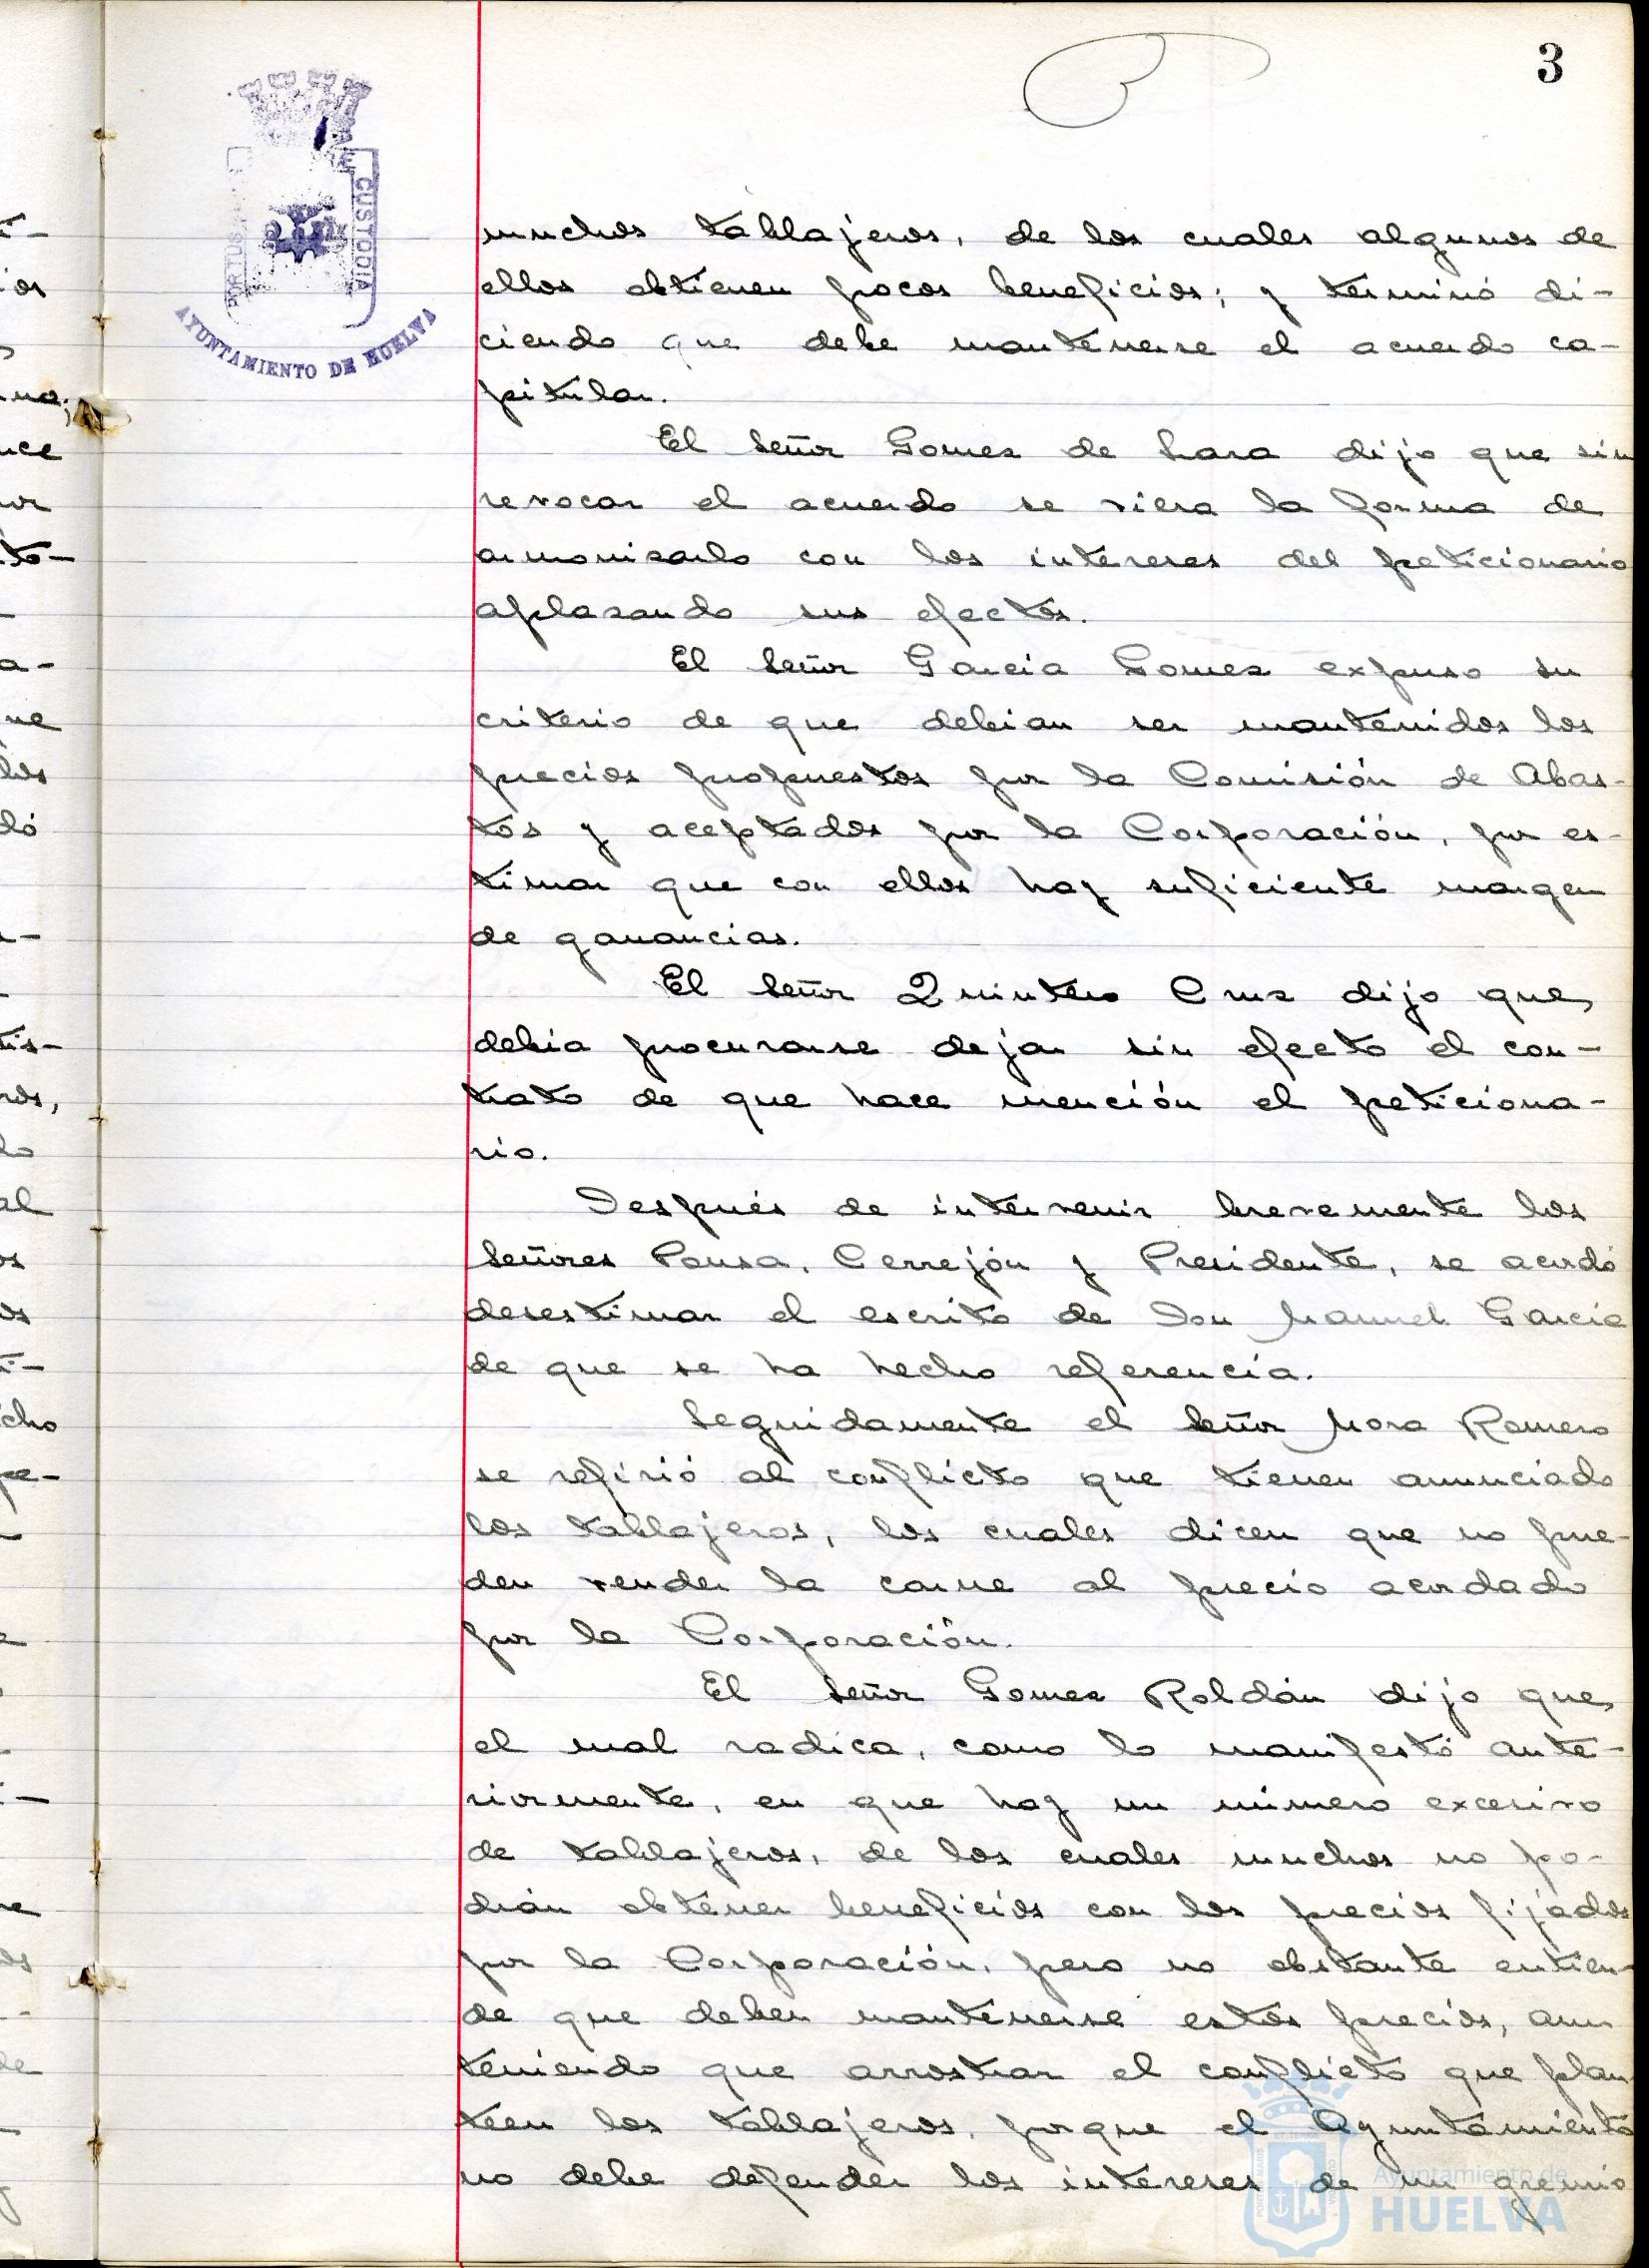 3
muchos tablajeros, de los cuales algunos de
ellos obtienen pocos beneficios; y terminó di-
ciendo que debe mantenerse el acuerdo ca-
pitular.
El Señor Gomez de Lara dijo que sin
revocar el acuerdo se viera la forma de
armonizarlo con los intereses del peticionario
aplazando sus efectos.
El Señor García Gomez expuso su
criterio de que debian ser mantenidos los
precios propuestos por la Comisión de Abas-
tos y aceptados por la Corporación, por es-
timar que con ellos hay suficiente margen
de ganancias.
El Señor Quintero Cruz dijo que
debia procurarse dejar sin efecto el con-
trato de que hace mención el peticiona-
rio.
Después de intervenir brevemente los
Señores Pousa, Cerrejón y Presidente, se acordó
desestimar el escrito de Don Manuel García
de que se ha hecho referencia.
Seguidamente el Señor Mora Romero
se refirió al conflicto que tienen anunciado
los tablajeros, los cuales dicen que no pue-
den vender la carne al precio acordado
por la Corporación.
El Señor Gomez Roldán dijo que
el mal radica, como lo manifestó ante-
riormente, en que hay un número excesivo
de tablajeros, de los cuales muchos no po-
drán obtener beneficios con los precios fijados
por la Corporación, pero no obstante entien-
de que deben mantenerse estos precios, aun
teniendo que arrostrar el conflicto que plan-
teen los tablajeros, porque el Ayuntamiento
no debe defender los intereses de un gremio
CUSTODIA
AYUNTAMIENTO DE HUELVA
Ayuntamiento de
HUELVA